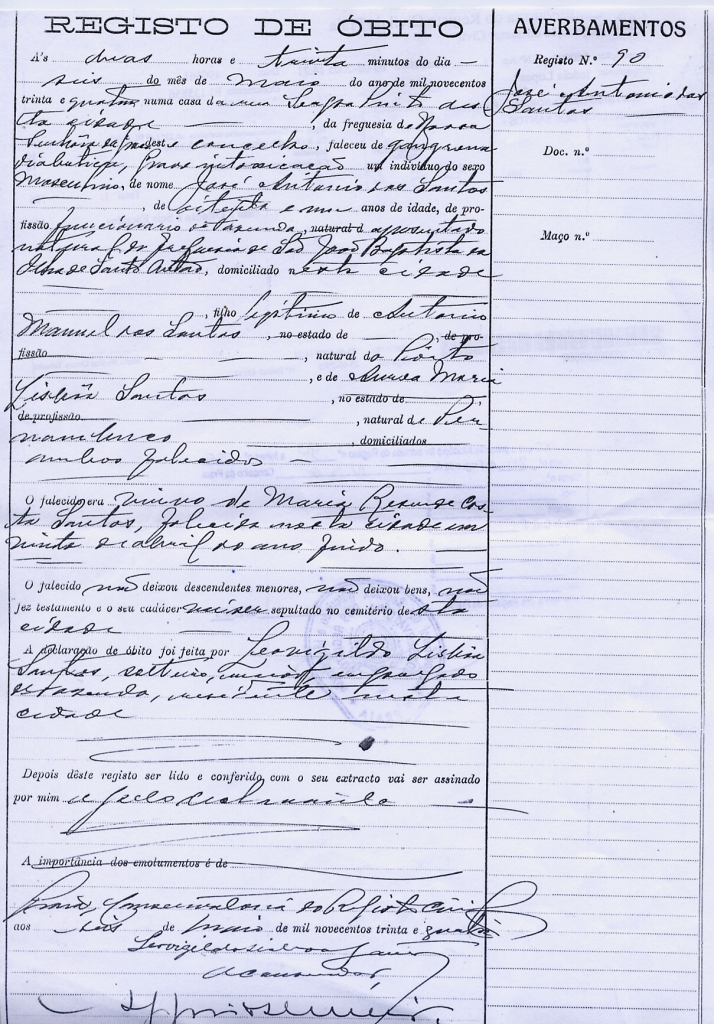 REGISTO DE ÓBITO
AVERBAMENTOS
Registo N.º 90
José Antonio dos
Santos
Doc. n.º
Maço n.º
A's duas horas e trinta minutos do dia
seis do mês de Maio do ano de mil novecentos
trinta e quatro numa casa da rua Serpa Pinto des
ta cidade, da freguesia de Nossa
Senhora da deste concelho, faleceu de gangrena
diabetica, intoxicação um indivíduo do sexo
Masculino, de nome José Antonio dos Santos
, de oitenta e um anos de idade, de pro-
fissão funcionario de fazenda, natural d aposentado
natural da freguesia de São João Baptista da
Ilha de Santo Antão, domiciliado nesta cidade
, filho legitimo de Antonio
Manuel dos Santos, no estado de , de pro-
fissão , natural do Porto
, e de Maria
Lisbôa Santos, no estado de
de profissão , natural de Per
nambuco , domiciliados
ambos falecidos
O falecido era viuvo de Maria Costa
Santos, falecida nesta cidade em
vinte de abril do ano findo.
O falecido não deixou descendentes menores, não deixou bens, não
fez testamento e o seu cadáver vai ser sepultado no cemitério desta
cidade
A declaração de óbito foi feita por Leovigildo Lisbôa
Santos, solteiro, maior, empregado
de fazenda, residente nesta
cidade
Depois dêste registo ser lido e conferido com o seu extracto vai ser assinado
por mim e pelo declarante
A importância dos emolumentos é de
Praia, Conservatoria do Registo Civil
aos seis de Maio de mil novecentos trinta e quatro